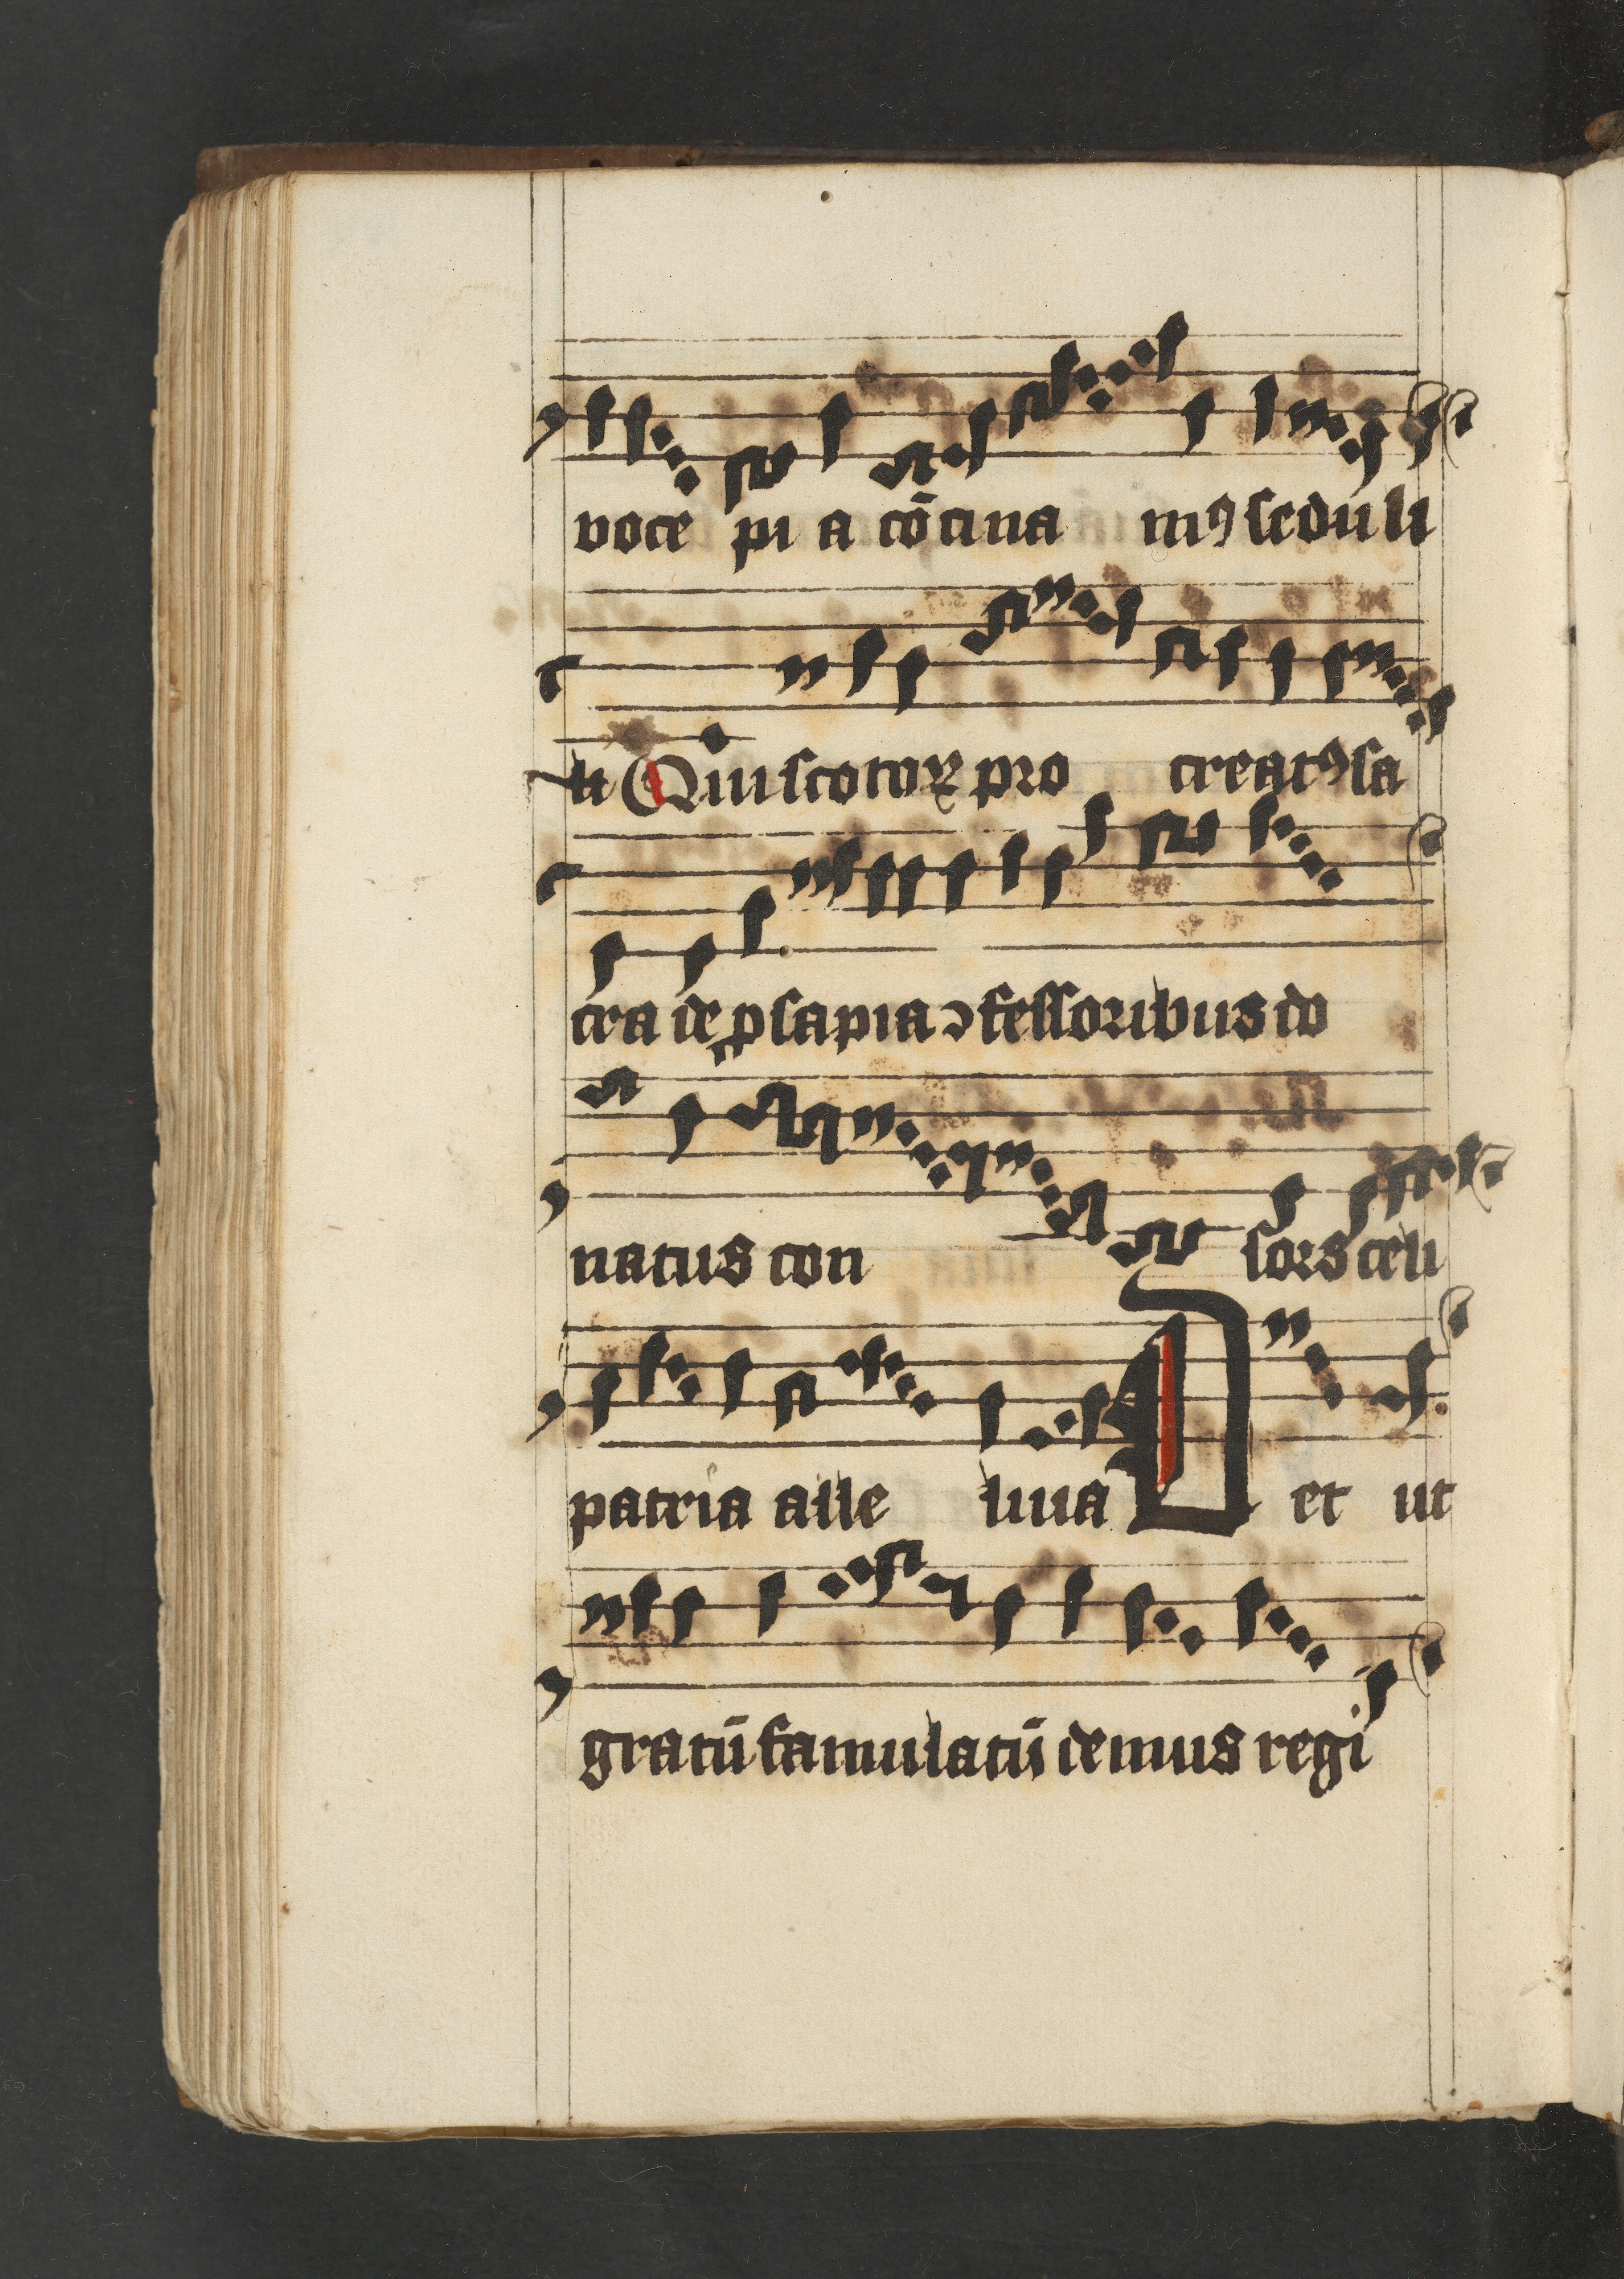 voce pi a cōcina mꝰ seduli
li Qui scotoꝝ pro creatꝰ sa
cra de ꝓsapia ɔfessoribus do
natus con sors celi
patria alle luia D et ut
gratū famulatū demus regi